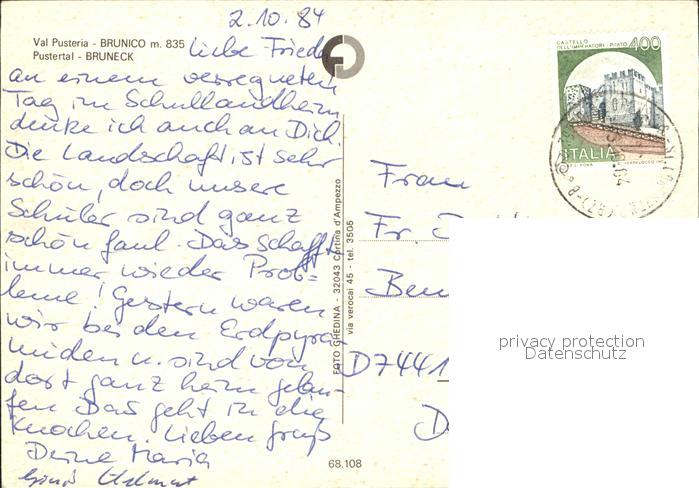 2.10.84
Val Pusteria - BRUNICO m. 835
Pustertal - BRUNECK
Liebe Frieda
an einem verregneten
Tag im Schullandheim
denke ich auch an Dich.
Die Landschaft ist sehr
schön, doch unsere
Schüler sind ganz
schön faul. Das schafft
immer wieder Prob=
leme! Gestern waren
wir bei den Erdpyra-
miden u. sind von
dort ganz heim gelau-
fen. Das geht in die
Knochen. Lieben Gruß
Deine Maria
Gruß Helmut
FOTO GHEDINA - 32043 Cortina d'Ampezzo
via verocai 45 - tel. 3505
68.108
CASTELLO
DELL'IMPERATORE · PRATO
400
ITALIA
Frau
Fr.
D7441
privacy protection
Datenschutz